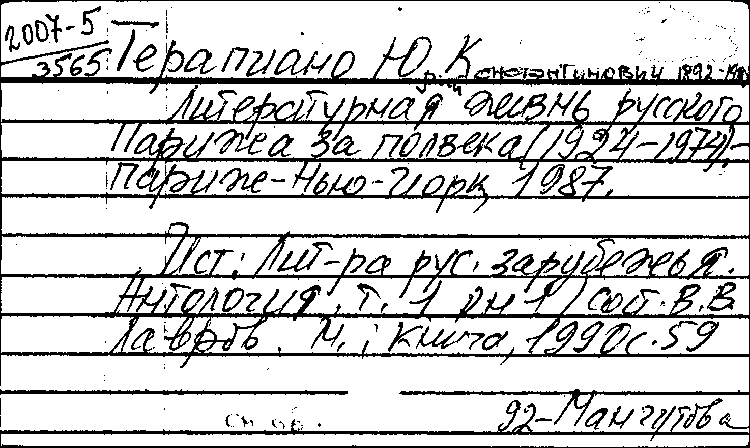 2007-5
3565
Терапиано Ю. Константинович 1892-1980
рий
Литературная жизнь русского
Парижа за полвека (1924-1974).-
Париж-Нью-Йорк, 1987.
Ист: Лит-ра рус. зарубежья.
Антология. т. 1 кн 1 / сост. В.В.
Лавров. М.: Книга, 1990 с. 59
92-Мангутова
см. об.